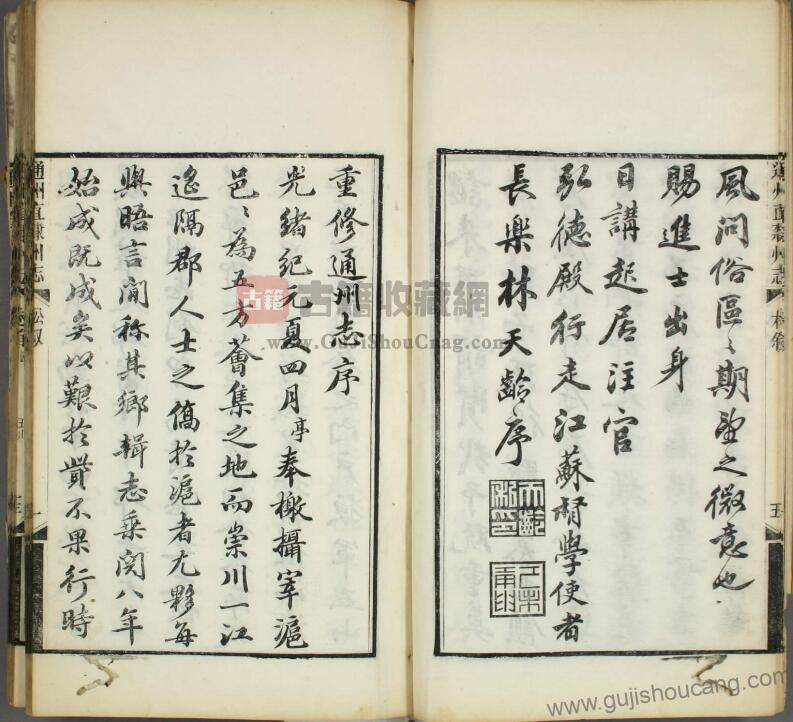 風問俗區〻期望之微意也
賜進士出身
日講起居注官
弘德殿行走江蘇督學使者
長樂林天齡序
天齡私印
重修通州志序
光緒紀元夏四月亭奉檄攝宰滬
邑〻為五方薈集之地而崇川一江
遙隔郡人士之僑於滬者尤夥每
與晤言間稱其鄉輯志乗閱八年
始成既成矣以艱於貲不果行時
通州直隸州志
通州直隸州志
古籍
古籍收藏網
www.GuJiShouCnag.com
www.gujishoucang.com